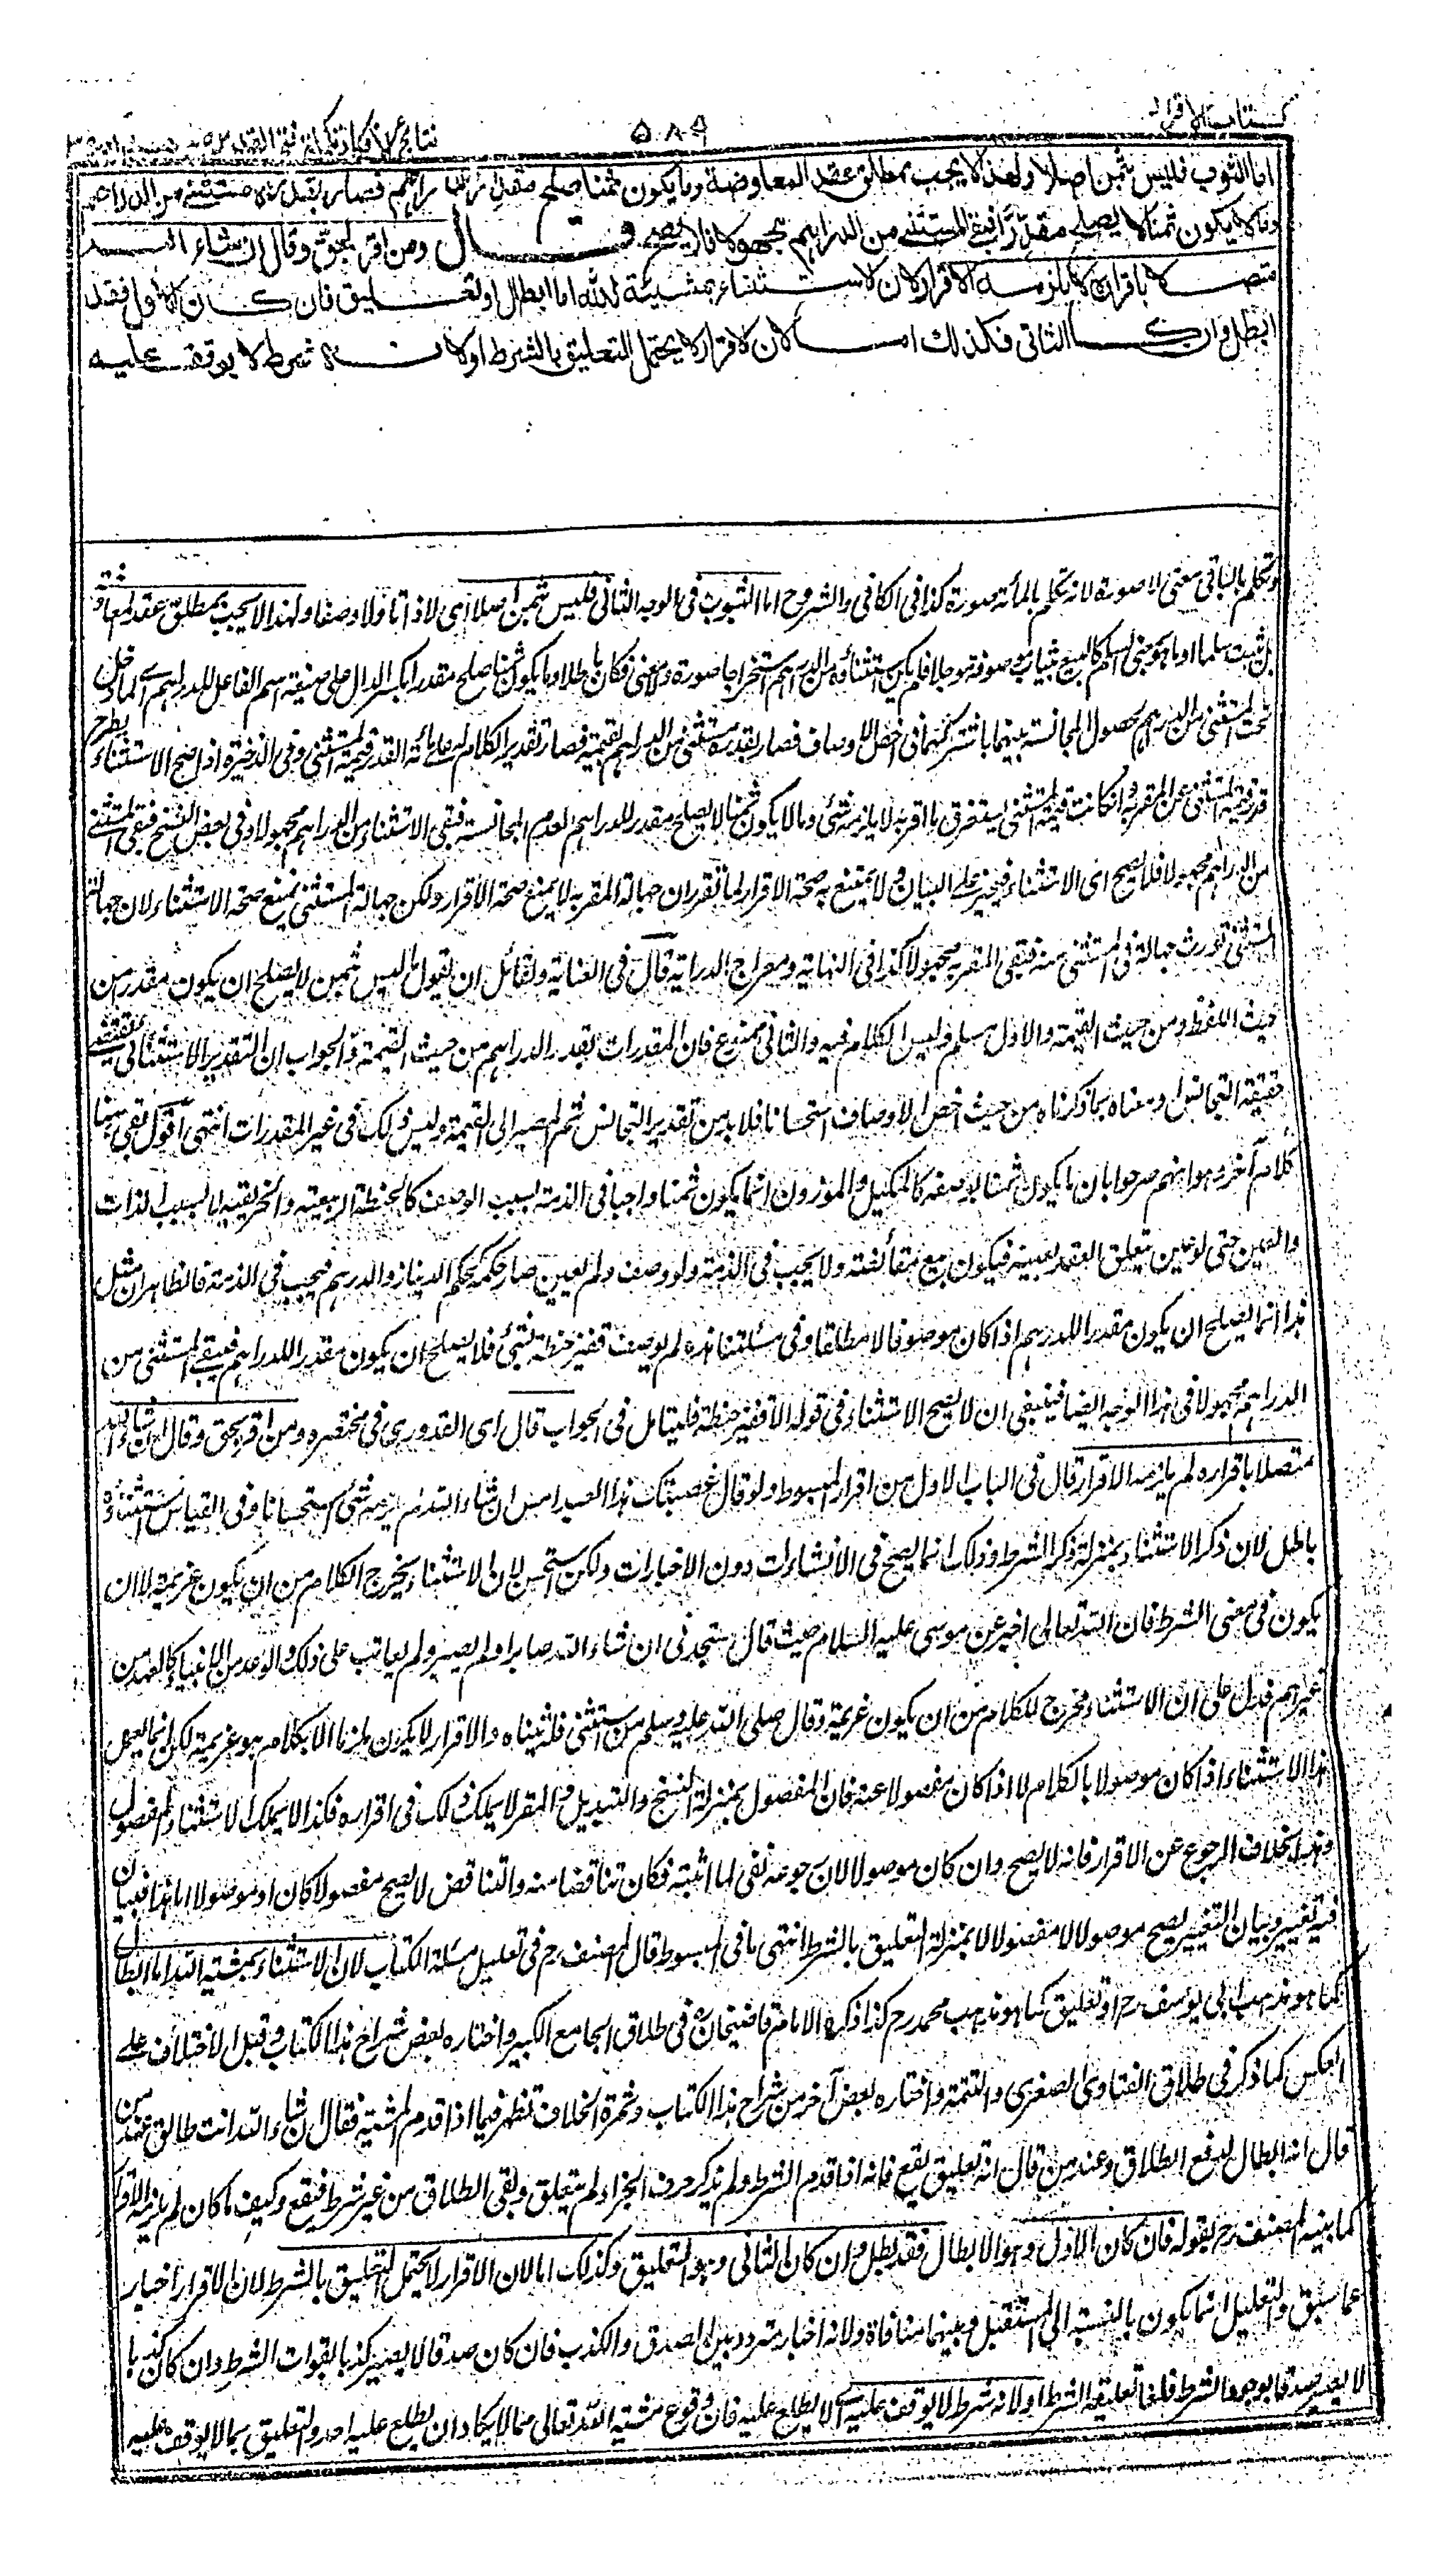 كتاب الاقرار
٥٨٩
نتائج الافكار تكملة فتح القدير
اما الثوب فليس بثمن اصلا ولهذا لا يجب بمطلق عقد المعاوضة وما يكون ثمنا صلح مقدرا للدراهم فصار بقدره مستثنى من الدراهم
وما لا يكون ثمنا لا يصلح مقدرا فبقى المستثنى من الدراهم مجهولا فلا يصح قال ومن اقر بحق وقال ان شاء الله
متصلا باقراره لا يلزمه الاقرار لان الاستثناء بمشيئة الله اما ابطال او تعليق فان كان الاول فقد
ابطل وان كان الثانى فكذلك اما لان الاقرار لا يحتمل التعليق بالشرط او لانه شرط لا يوقف عليه
وتكلم بالباقى معنى لا صورة لانه تكلم بالمأته صورة كذا فى الكافى والشروح اما الثوب فى الوجه الثانى فليس بثمن اصلا اى لا ذاتا ولا وصفا ولهذا لا يجب بمطلق عقد المعاوضة
بل يثبت سلما او ما هو بمعنى السلم كالبيع بثياب موصوفة مؤجلا فلم يكن استثناؤه من الدراهم استخراجا صورة ولا معنى فكان باطلا وما يكون ثمنا صلح مقدرا بكسر الدال على صيغة اسم الفاعل للدراهم اى لما دخل
تحت المستثنى من الدراهم لحصول المجانسة بينهما باشتراكهما فى اخص الاوصاف فصار بقدره مستثنى من الدراهم بقيمته فصار تقدير الكلام له على مائة الا قدر قيمة المستثنى وفى الذخيرة اذا صح الاستثناء يطرح
قدر قيمة المستثنى عن المقر به وان كانت قيمة المستثنى يستغرق ما اقر به لا يلزمه شئ وما لا يكون ثمنا لا يصلح مقدرا للدراهم لعدم المجانسة فبقى الاستثناء من الدراهم مجهولا وفى بعض النسخ فبقى المستثنى
من الدراهم مجهولا فلا يصح اى الاستثناء فيجبر على البيان ولا يمتنع به صحة الاقرار لما تقرر ان جهالة المقر به لا يمنع صحة الاقرار ولكن جهالة المستثنى يمنع صحة الاستثناء لان جهالة
المستثنى تورث جهالة فى المستثنى منه فيبقى المقر به مجهولا كذا فى النهاية ومعراج الدراية قال فى العناية ولقائل ان يقول ما ليس بثمن لا يصلح ان يكون مقدرا من
حيث اللفظ ومن حيث القيمة والاول مسلم وليس الكلام فيه والثانى ممنوع فان المقدرات بقدر الدراهم من حيث القيمة والجواب ان التقدير الاستثنائى يقتضى
حقيقة التجانس او معناه بما ذكرناه من حيث اخص الاوصاف استحسانا فلا بد من تقدير التجانس ثم المصير الى القيمة وليس ذلك فى غير المقدرات انتهى اقول بقى ههنا
كلام آخر وهو انهم صرحوا بان ما يكون ثمنا بوصفه كالمكيل والموزون انما يكون ثمنا واجبا فى الذمة بسبب الوصف كالحنطة الربيعية والخريفية لا بسبب الذات
والعين حتى لو عين تعلق العقد بعينه فيكون بيع مقايضة ولا يجب فى الذمة ولو وصف ولم يعين صار حكمه كحكم الدينار والدرهم فيجب فى الذمة فالظاهر ان مثل
هذا انما يصلح ان يكون مقدرا للدرهم اذا كان موصوفا لا مطلقا وفى مسئلتنا هذه لم يوصف قفيز حنطة بشئ فلا يصلح ان يكون مقدرا للدراهم فيبقى المستثنى من
الدراهم مجهولا فى هذا الوجه ايضا فينبغى ان لا يصح الاستثناء فى قوله الا قفيز حنطة فليتامل فى الجواب قال اى القدورى فى مختصره ومن اقر بحق وقال ان شاء الله
متصلا باقراره لم يلزمه الاقرار قال فى الباب الاول من اقرار المبسوط ولو قال غصبتك هذا العبد امس ان شاء الله لم يلزمه شئ استحسانا وفى القياس استثناؤه
باطل لان ذكر الاستثناء بمنزلة ذكر الشرط وذلك انما يصح فى الانشاءات دون الاخبارات ولكن استحسن لان الاستثناء يخرج الكلام من ان يكون عزيمة لا ان
يكون فى معنى الشرط فان الله تعالى اخبر عن موسى عليه السلام حيث قال ستجدنى ان شاء الله صابرا ولم يصبر ولم يعاتب على ذلك والوعد من الانبياء كالعهد من
غيرهم فدل على ان الاستثناء مخرج للكلام من ان يكون عزيمة وقال صلى الله عليه وسلم من استثنى فله ثنياه والاقرار لا يكون ملزما الا بكلام هو عزيمة لكن انما يعمل
هذا الاستثناء اذا كان موصولا بالكلام لا اذا كان مفصولا عنه فان المفصول بمنزلة النسخ والتبديل والمقر لا يملك ذلك فى اقراره فكذا لا يملك الاستثناء المفصول
وهذا بخلاف الرجوع عن الاقرار فانه لا يصح وان كان موصولا لان رجوعه نفى لما اثبته فكان تناقضا منه والتناقض لا يصح مفصولا كان او موصولا اما هذا فبيان
فيه تغيير وبيان التغيير يصح موصولا لا مفصولا لا بمنزلة التعليق بالشرط انتهى ما فى المبسوط قال المصنف رح فى تعليل مسئلة الكتاب لان الاستثناء بمشيئة الله اما ابطال
كما هو مذهب ابى يوسف رح او تعليق كما هو مذهب محمد رح كذا ذكره الامام قاضيخان ره فى طلاق الجامع الكبير واختاره بعض شراح هذا الكتاب وقيل الاختلاف على
العكس كما ذكر فى طلاق الفتاوى الصغرى والتتمة واختاره بعض آخر من شراح هذا الكتاب وثمرة الخلاف تظهر فيما اذا قدم المشية فقال ان شاء الله انت طالق عند من
قال انه ابطال لا يقع الطلاق وعند من قال انه تعليق يقع فانه اذا قدم الشرط ولم يذكر حرف الجزاء لم يتعلق وبقى الطلاق من غير شرط فيقع وكيف ما كان لم يلزمه الاقرار
كما بينه المصنف رح بقوله فان كان الاول وهو الابطال فقد بطل وان كان الثانى وهو التعليق وكذلك اما لان الاقرار لا يحتمل التعليق بالشرط لان الاقرار اخبار
عما سبق والتعليل انما يكون بالنسبة الى المستقبل وبينهما منافاة ولانه اخبار متردد بين الصدق والكذب فان كان صدقا لا يصير كذبا بفوات الشرط وان كان كذبا
لا يصير صدقا بوجود الشرط فلغا تعليقه بالشرط او لانه شرط لا يوقف عليه اى لا يطلع عليه فان وقوع مشية الله تعالى مما لا يكاد ان يطلع عليه احد والتعليق بما لا يوقف عليه